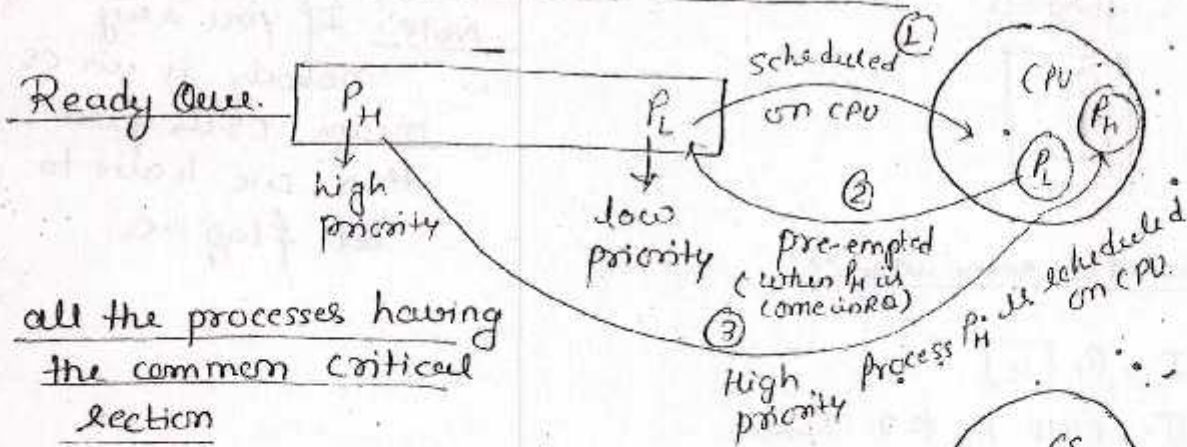 Ready Queue.
P_H
high
priority
P_L
low
priority
①
scheduled
on CPU
CPU
P_H
P_L
②
pre-empted
(when P_H is
come in RQ)
③
High
priority
Process P_H is scheduled
on CPU.
all the processes having
the common critical
section
CS